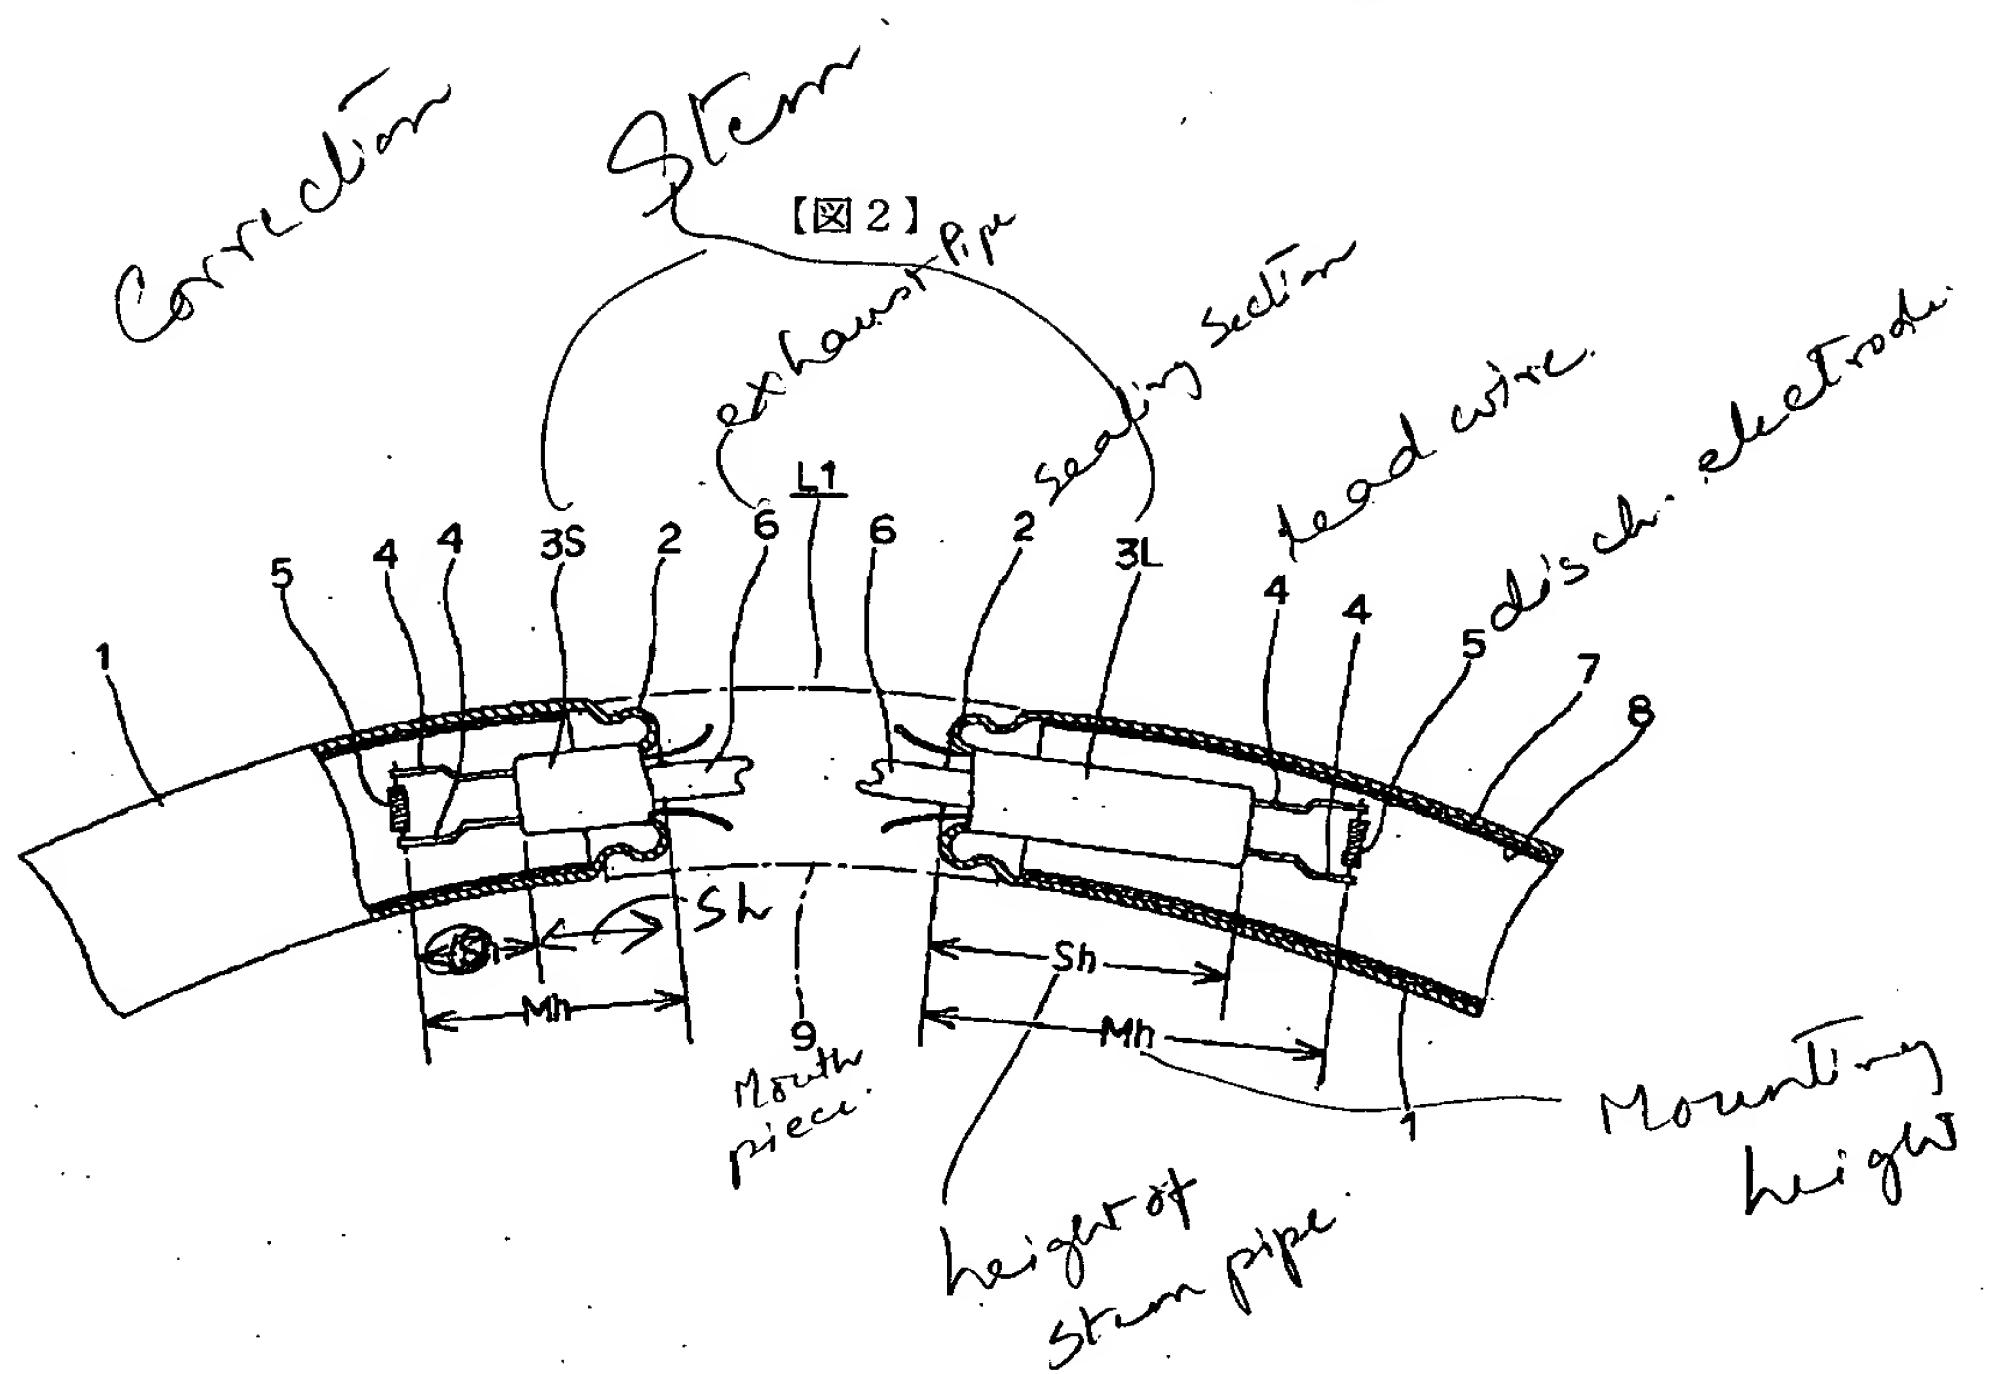 Correction
Stem
【図2】
exhaust pipe
sealing section
lead wire
disch. electrode
L1
5 4 4 3S 2 6 6 2 3L 4 4 5 7 8
1
Sh
Mh
Sh
Mh
9
Mouth
piece.
1
Mounting
height
height of
stem pipe